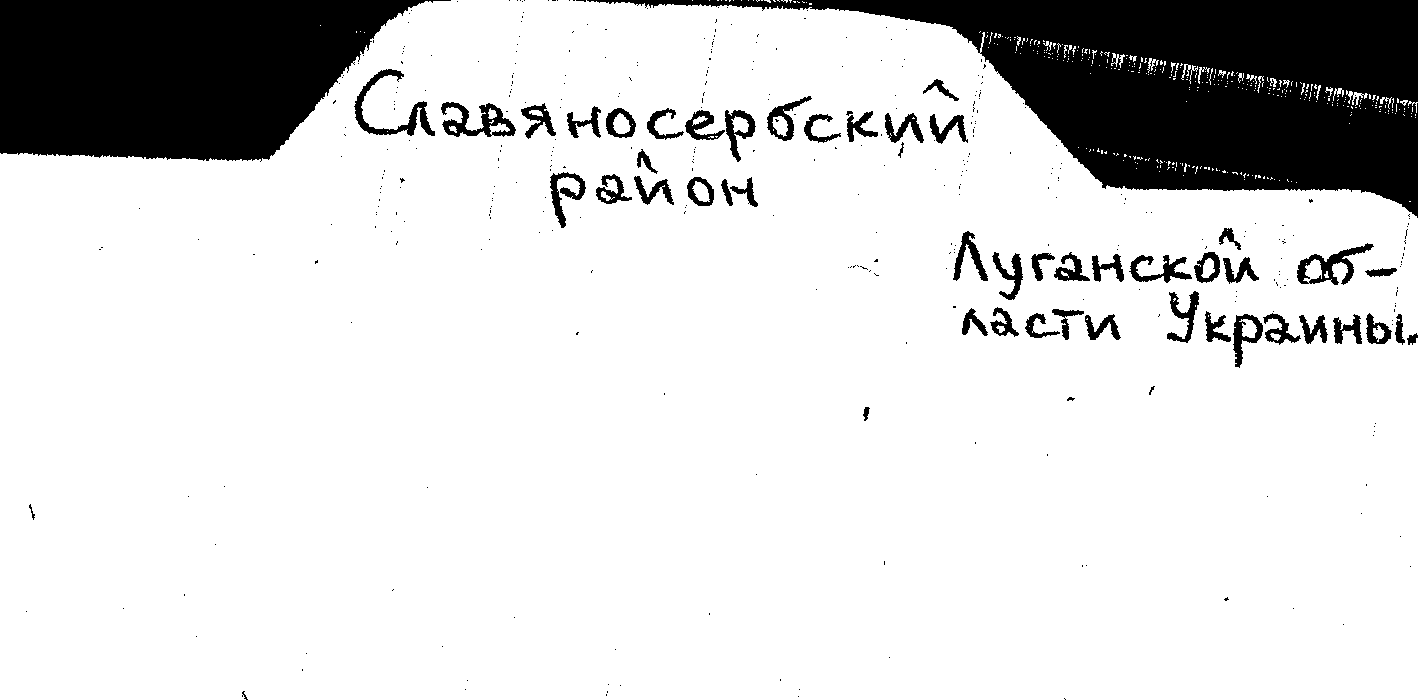 Славяносербский
район
Луганской об-
ласти Украины.